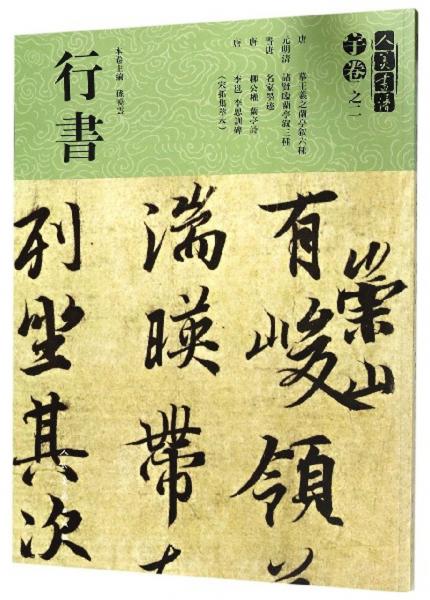 人美書譜
宇卷 之二
唐 摹王羲之蘭亭敘六種
元明清 諸賢臨蘭亭敘三種
晉唐 名家墨迹
唐 柳公權 蘭亭詩
唐 李邕 李思訓碑
（宋拓集萃本）
本卷主編 孫曉雲
行書
崇山
有峻領
湍暎帶
列坐其次